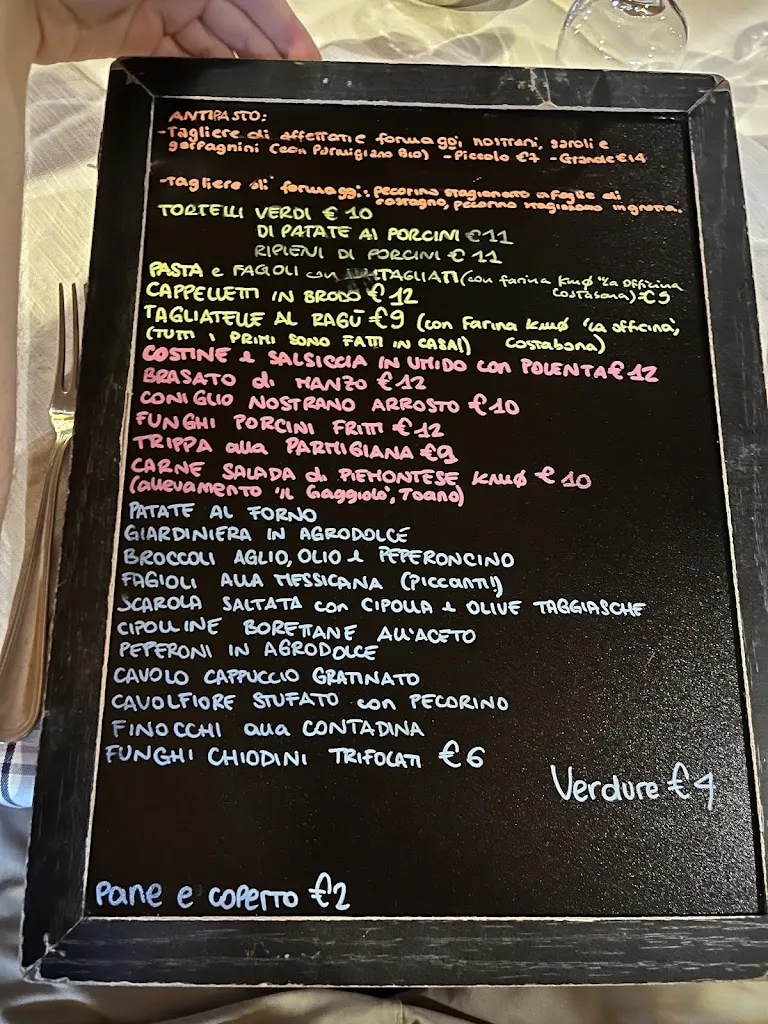 ANTIPASTO:
-Tagliere di affettati e formaggi, nostrani, saroli e
garfagnini (con Parmigiano Bio) - Piccolo €7 - Grande €14
-Tagliere di formaggi: pecorino stagionato in foglie di
castagno, pecorino stagionato in grotta.
TORTELLI VERDI € 10
DI PATATE AI PORCINI €11
RIPIENI DI PORCINI € 11
PASTA e FAGIOLI con TAGLIATI (con farina Kmø "La Officina
Costabona) €9
CAPPELLETTI IN BRODO € 12
TAGLIATELLE AL RAGÙ €9 (con Farina Kmø "La officina",
(TUTTI I PRIMI SONO FATTI IN CASA!) Costabona)
COSTINE e SALSICCIA IN UMIDO con POLENTA € 12
BRASATO di MANZO € 12
CONIGLIO NOSTRANO ARROSTO €10
FUNGHI PORCINI FRITTI €12
TRIPPA alla PARMIGIANA €9
CARNE SALADA di PIEMONTESE Kmø € 10
(allevamento "Il Gaggiolo", Toano)
PATATE AL FORNO
GIARDINIERA IN AGRODOLCE
BROCCOLI AGLIO, OLIO e PEPERONCINO
FAGIOLI ALLA MESSICANA (PICCANTI!)
SCAROLA SALTATA con CIPOLLA e OLIVE TAGGIASCHE
CIPOLLINE BORETTANE ALL'ACETO
PEPERONI IN AGRODOLCE
CAVOLO CAPPUCCIO GRATINATO
CAVOLFIORE STUFATO con PECORINO
FINOCCHI alla CONTADINA
FUNGHI CHIODINI TRIFOLATI € 6
Verdure € 4
Pane e COPERTO €2